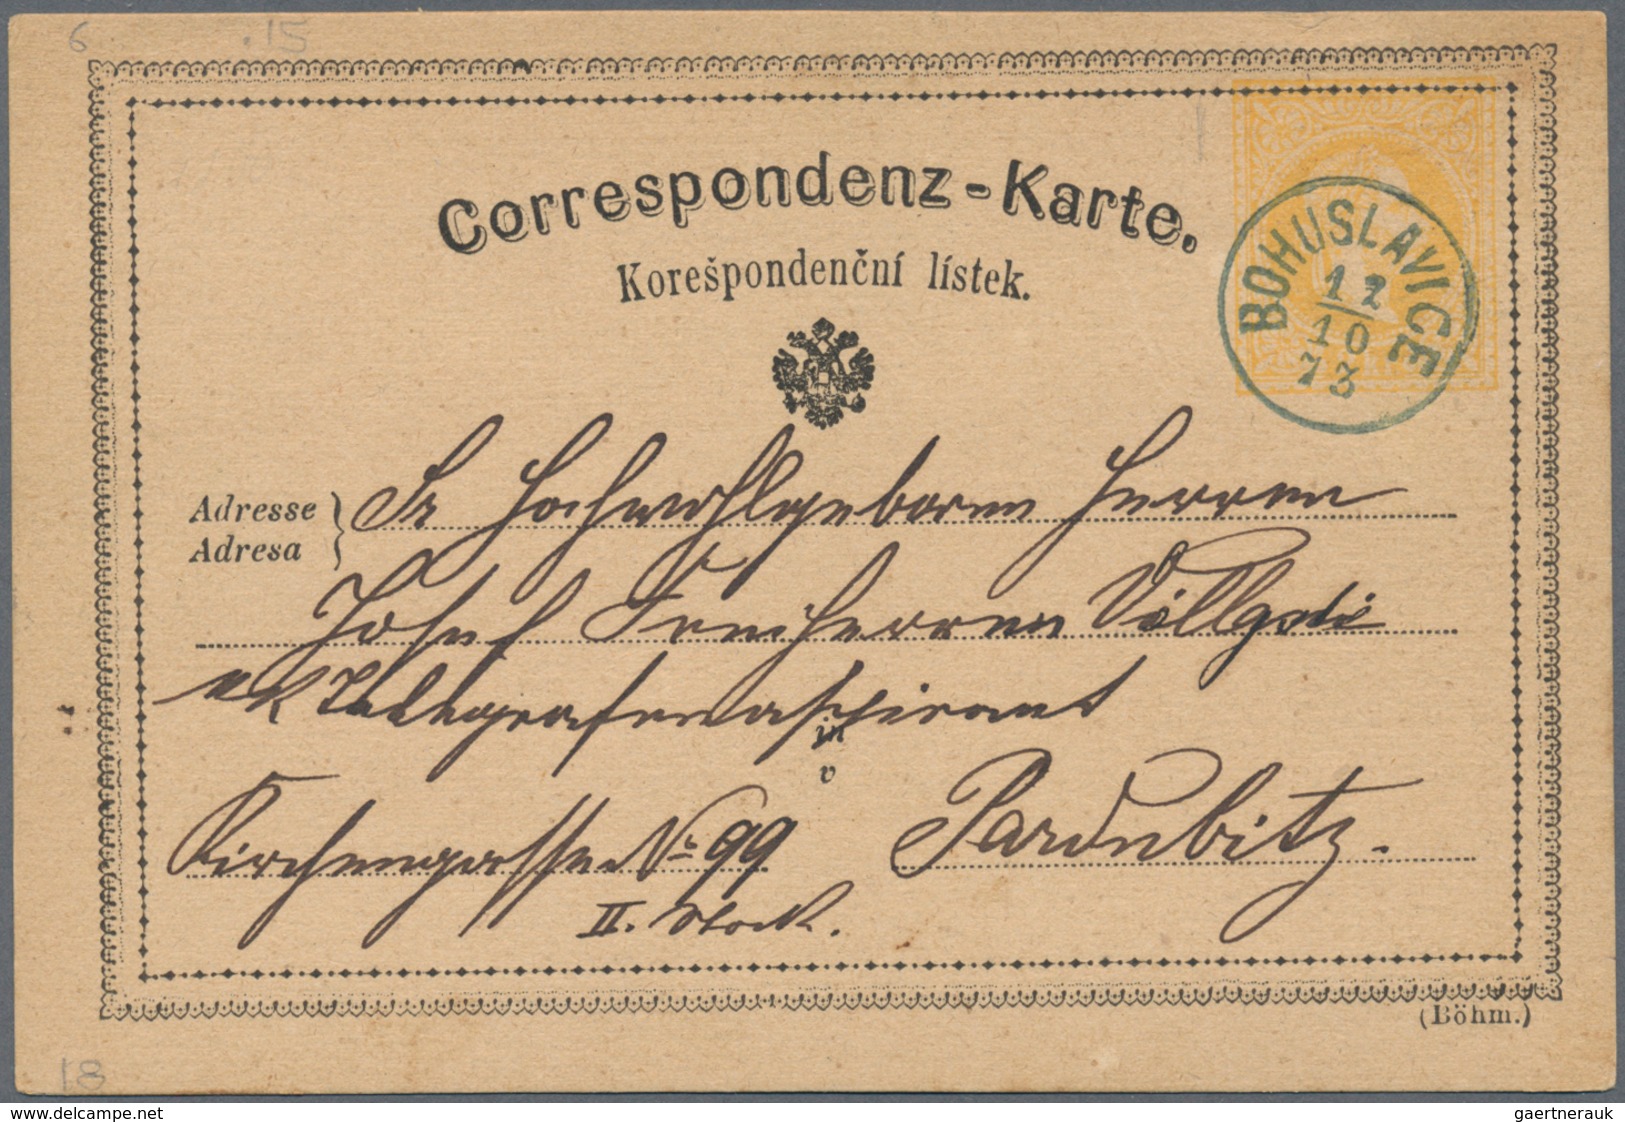 6 .15
Correspondenz-Karte.
Korešpondenční lístek.
BOHUSLAVICE
12
10
73
Adresse
Adresa
Sr Hochwohlgeboren Herren
Josef Freiherren
kk Telegrafenaspirant
in
Kirchengasse No 99 Pardubitz.
II. Stock.
(Böhm.)
18
www.delcampe.net
gaertnerauk